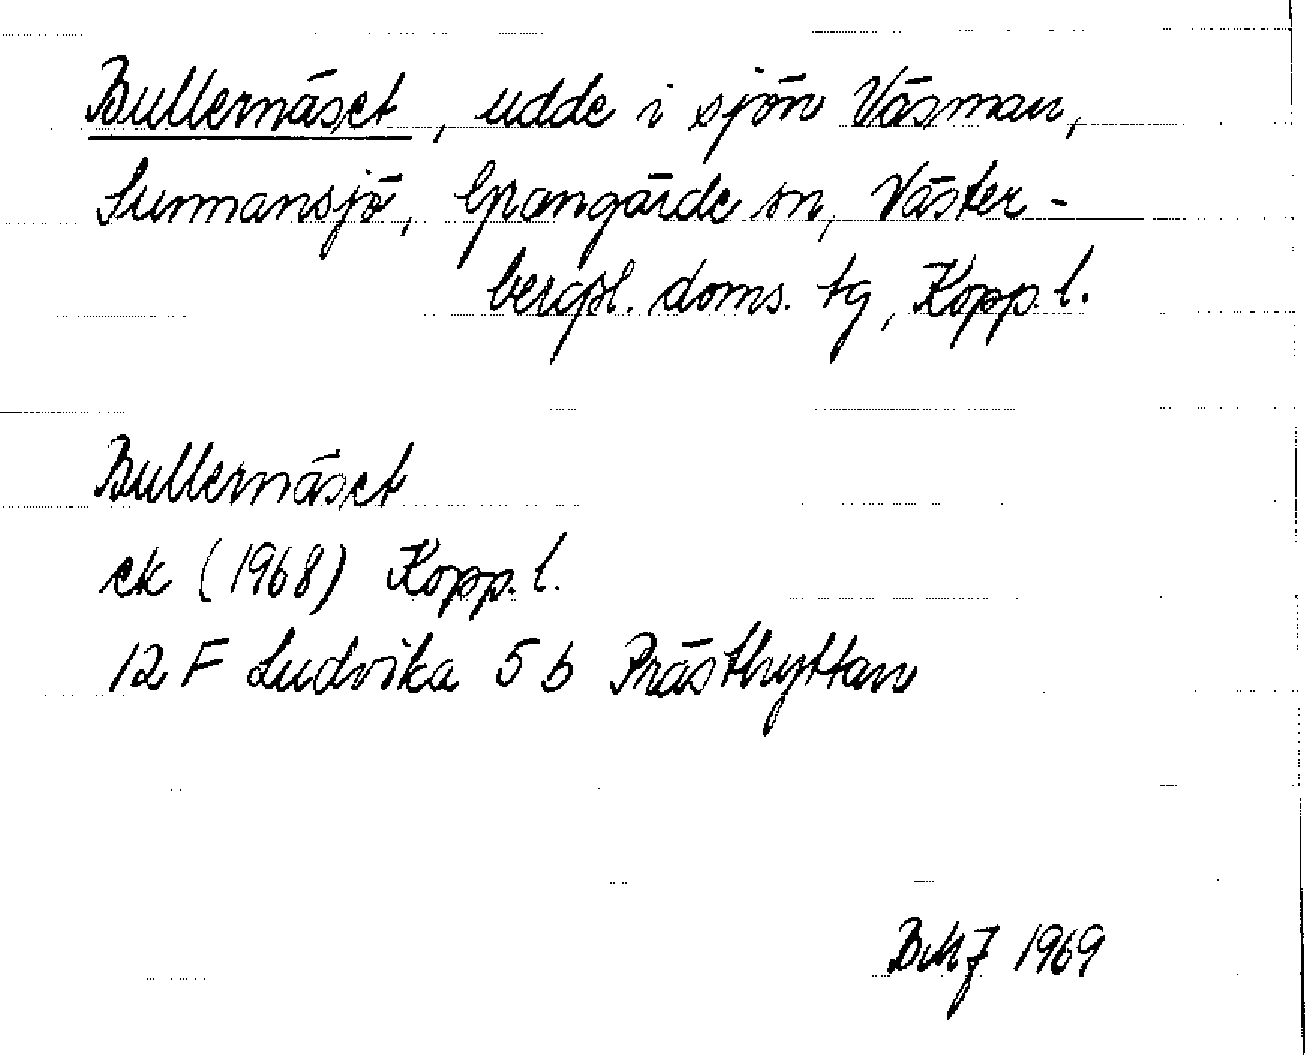 Bullernäset, udde i sjön Väsman,
Sunnansjö, Grangärde sn, Väster-
bergsl. doms. tg, Kopp. l.
Bullernäset
ek (1968) Kopp. l.
12 F Ludvika 5 b Prästhyttan
BMJ 1969